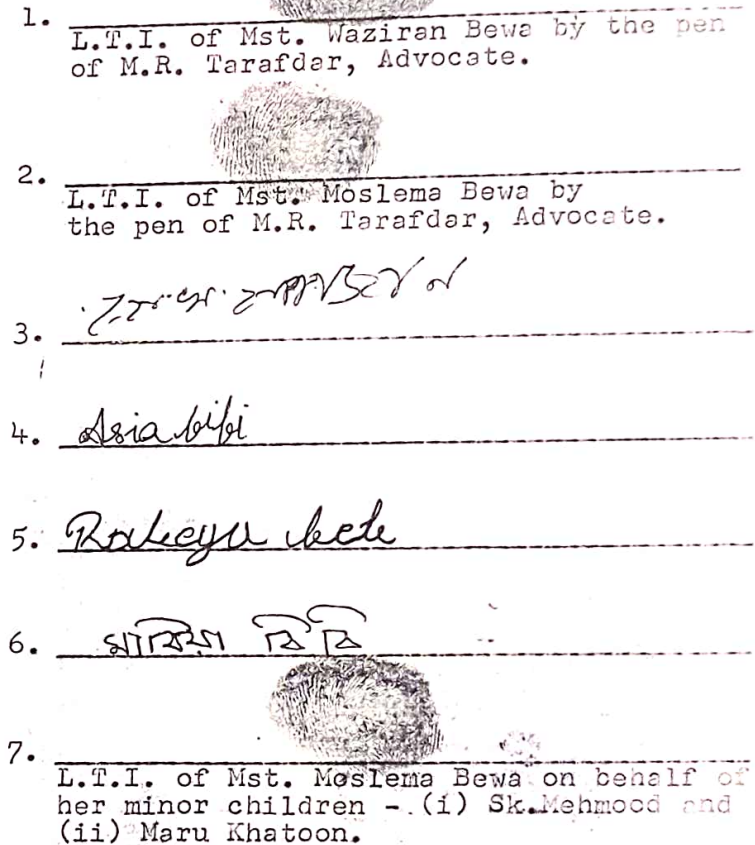 1.
L.T.I. of Mst. Waziran Bewa by the pen
of M.R. Tarafdar, Advocate.
2.
L.T.I. of Mst. Moslema Bewa by
the pen of M.R. Tarafdar, Advocate.
3.
4. Asia bibi
5.
6. মাবিয়া বি বি
7.
L.T.I. of Mst. Moslema Bewa on behalf of
her minor children - (i) Sk.Mehmood and
(ii) Maru Khatoon.